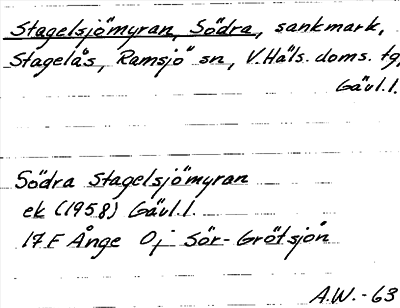 Stagelsjömyran, Södra, sankmark,
Stagelås, Ramsjö sn, V.Häls. doms. tg,
Gävl.l.
Södra Stagelsjömyran
ek (1958) Gävl.l.
17F Ånge 0j Sör-Grötsjön
A.W.-63